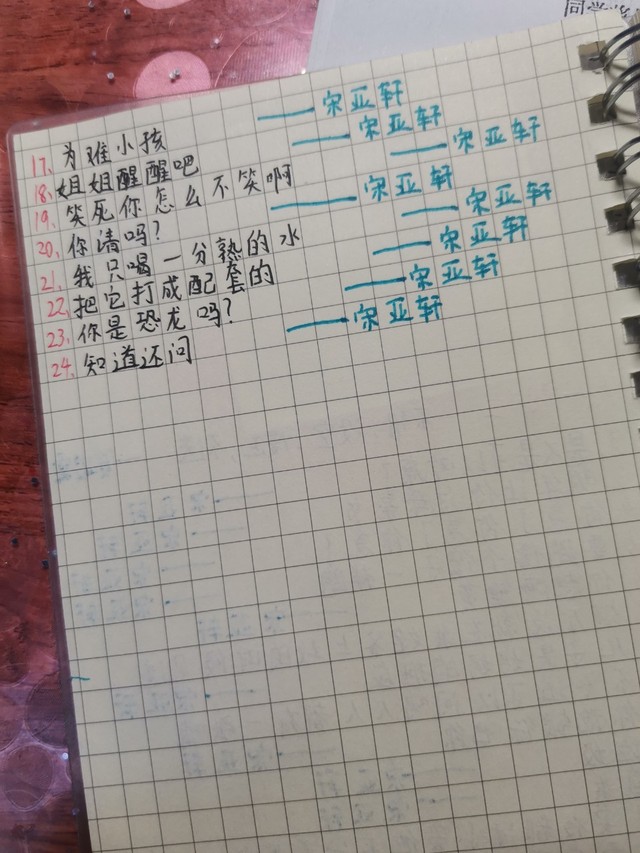 同学
17、为难小孩 ——宋亚轩
18、姐姐醒醒吧 ——宋亚轩
19、笑死你怎么不笑啊 ——宋亚轩
20、你清吗? ——宋亚轩
21、我只喝一分熟的水 ——宋亚轩
22、把它打成配套的 ——宋亚轩
23、你是恐龙吗? ——宋亚轩
24、知道还问 ——宋亚轩